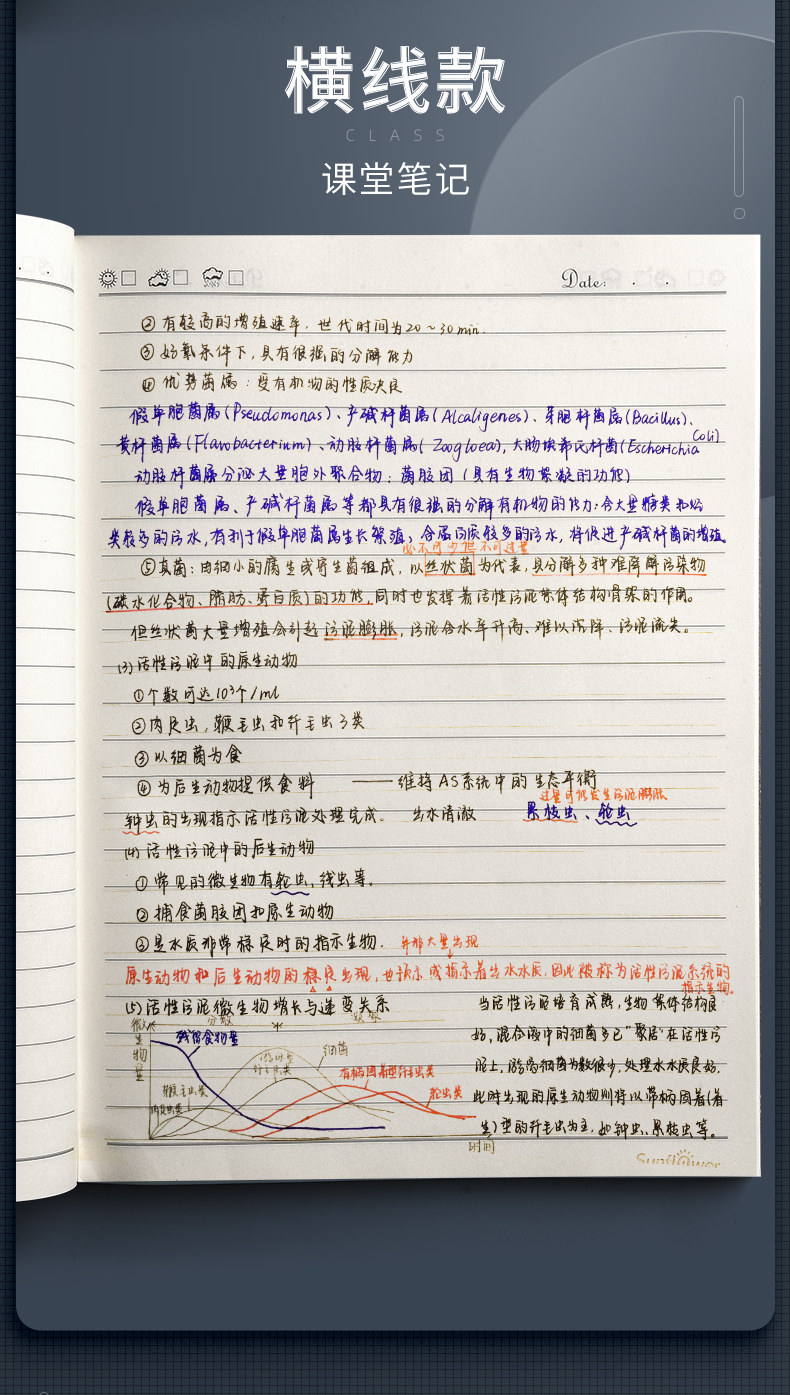 横线款
CLASS
课堂笔记
Date:
② 有较高的增殖速率，世代时间为20～30min.
③ 好氧条件下，具有很强的分解能力
④ 优势菌属：受有机物的性质决定
假单胞菌属(Pseudomonas)、产碱杆菌属(Alcaligenes)、芽胞杆菌属(Bacillus)、
黄杆菌属(Flavobacterium)、动胶杆菌属(Zoogloea)，大肠埃希氏杆菌(Escherichia
Coli)
动胶杆菌属分泌大量胞外聚合物：菌胶团(具有生物絮凝的功能)
假单胞菌属、产碱杆菌属等都具有很强的分解有机物的能力：含大量糖类和烃
类较多的污水，有利于假单胞菌属生长繁殖；含蛋白质较多的污水，将促进产碱杆菌的增殖。
必不可少但不可过量
⑤真菌：由细小的腐生或寄生菌组成，以丝状菌为代表，具分解多种难降解污染物
(碳水化合物、脂肪、蛋白质)的功能，同时也发挥着活性污泥絮体结构骨架的作用。
但丝状菌大量增殖会引起污泥膨胀，污泥含水率升高、难以沉降、污泥流失。
(3)活性污泥中的原生动物
①个数可达10³个/ml
②肉足虫，鞭毛虫和纤毛虫3类
③以细菌为食
④为后生动物提供食料 ——维持AS系统中的生态平衡
过量可能发生污泥膨胀
钟虫的出现指示活性污泥处理完成。 出水清澈 累枝虫、轮虫
(4)活性污泥中的后生动物
①常见的微生物有轮虫，线虫等。
②捕食菌胶团和原生动物
③是水质非常稳定时的指示生物. 并非大量出现
原生动物和后生动物的稳定出现，也预示或指示着出水水质，因此被称为活性污泥系统的
指示生物。
(5)活性污泥微生物增长与递变关系
微生物量
残留食物量
细菌
游泳型纤毛虫类
有柄固着型纤毛虫类
鞭毛虫类
肉足虫类
轮虫类
时间
当活性污泥培育成熟，生物絮体结构良
好，混合液中的细菌多已"聚居"在活性污
泥上，游离细菌为数很少，处理水水质良好.
此时出现的原生动物则将以带柄固着(着
生)型的纤毛虫为主，如钟虫、累枝虫等。
Sunflower